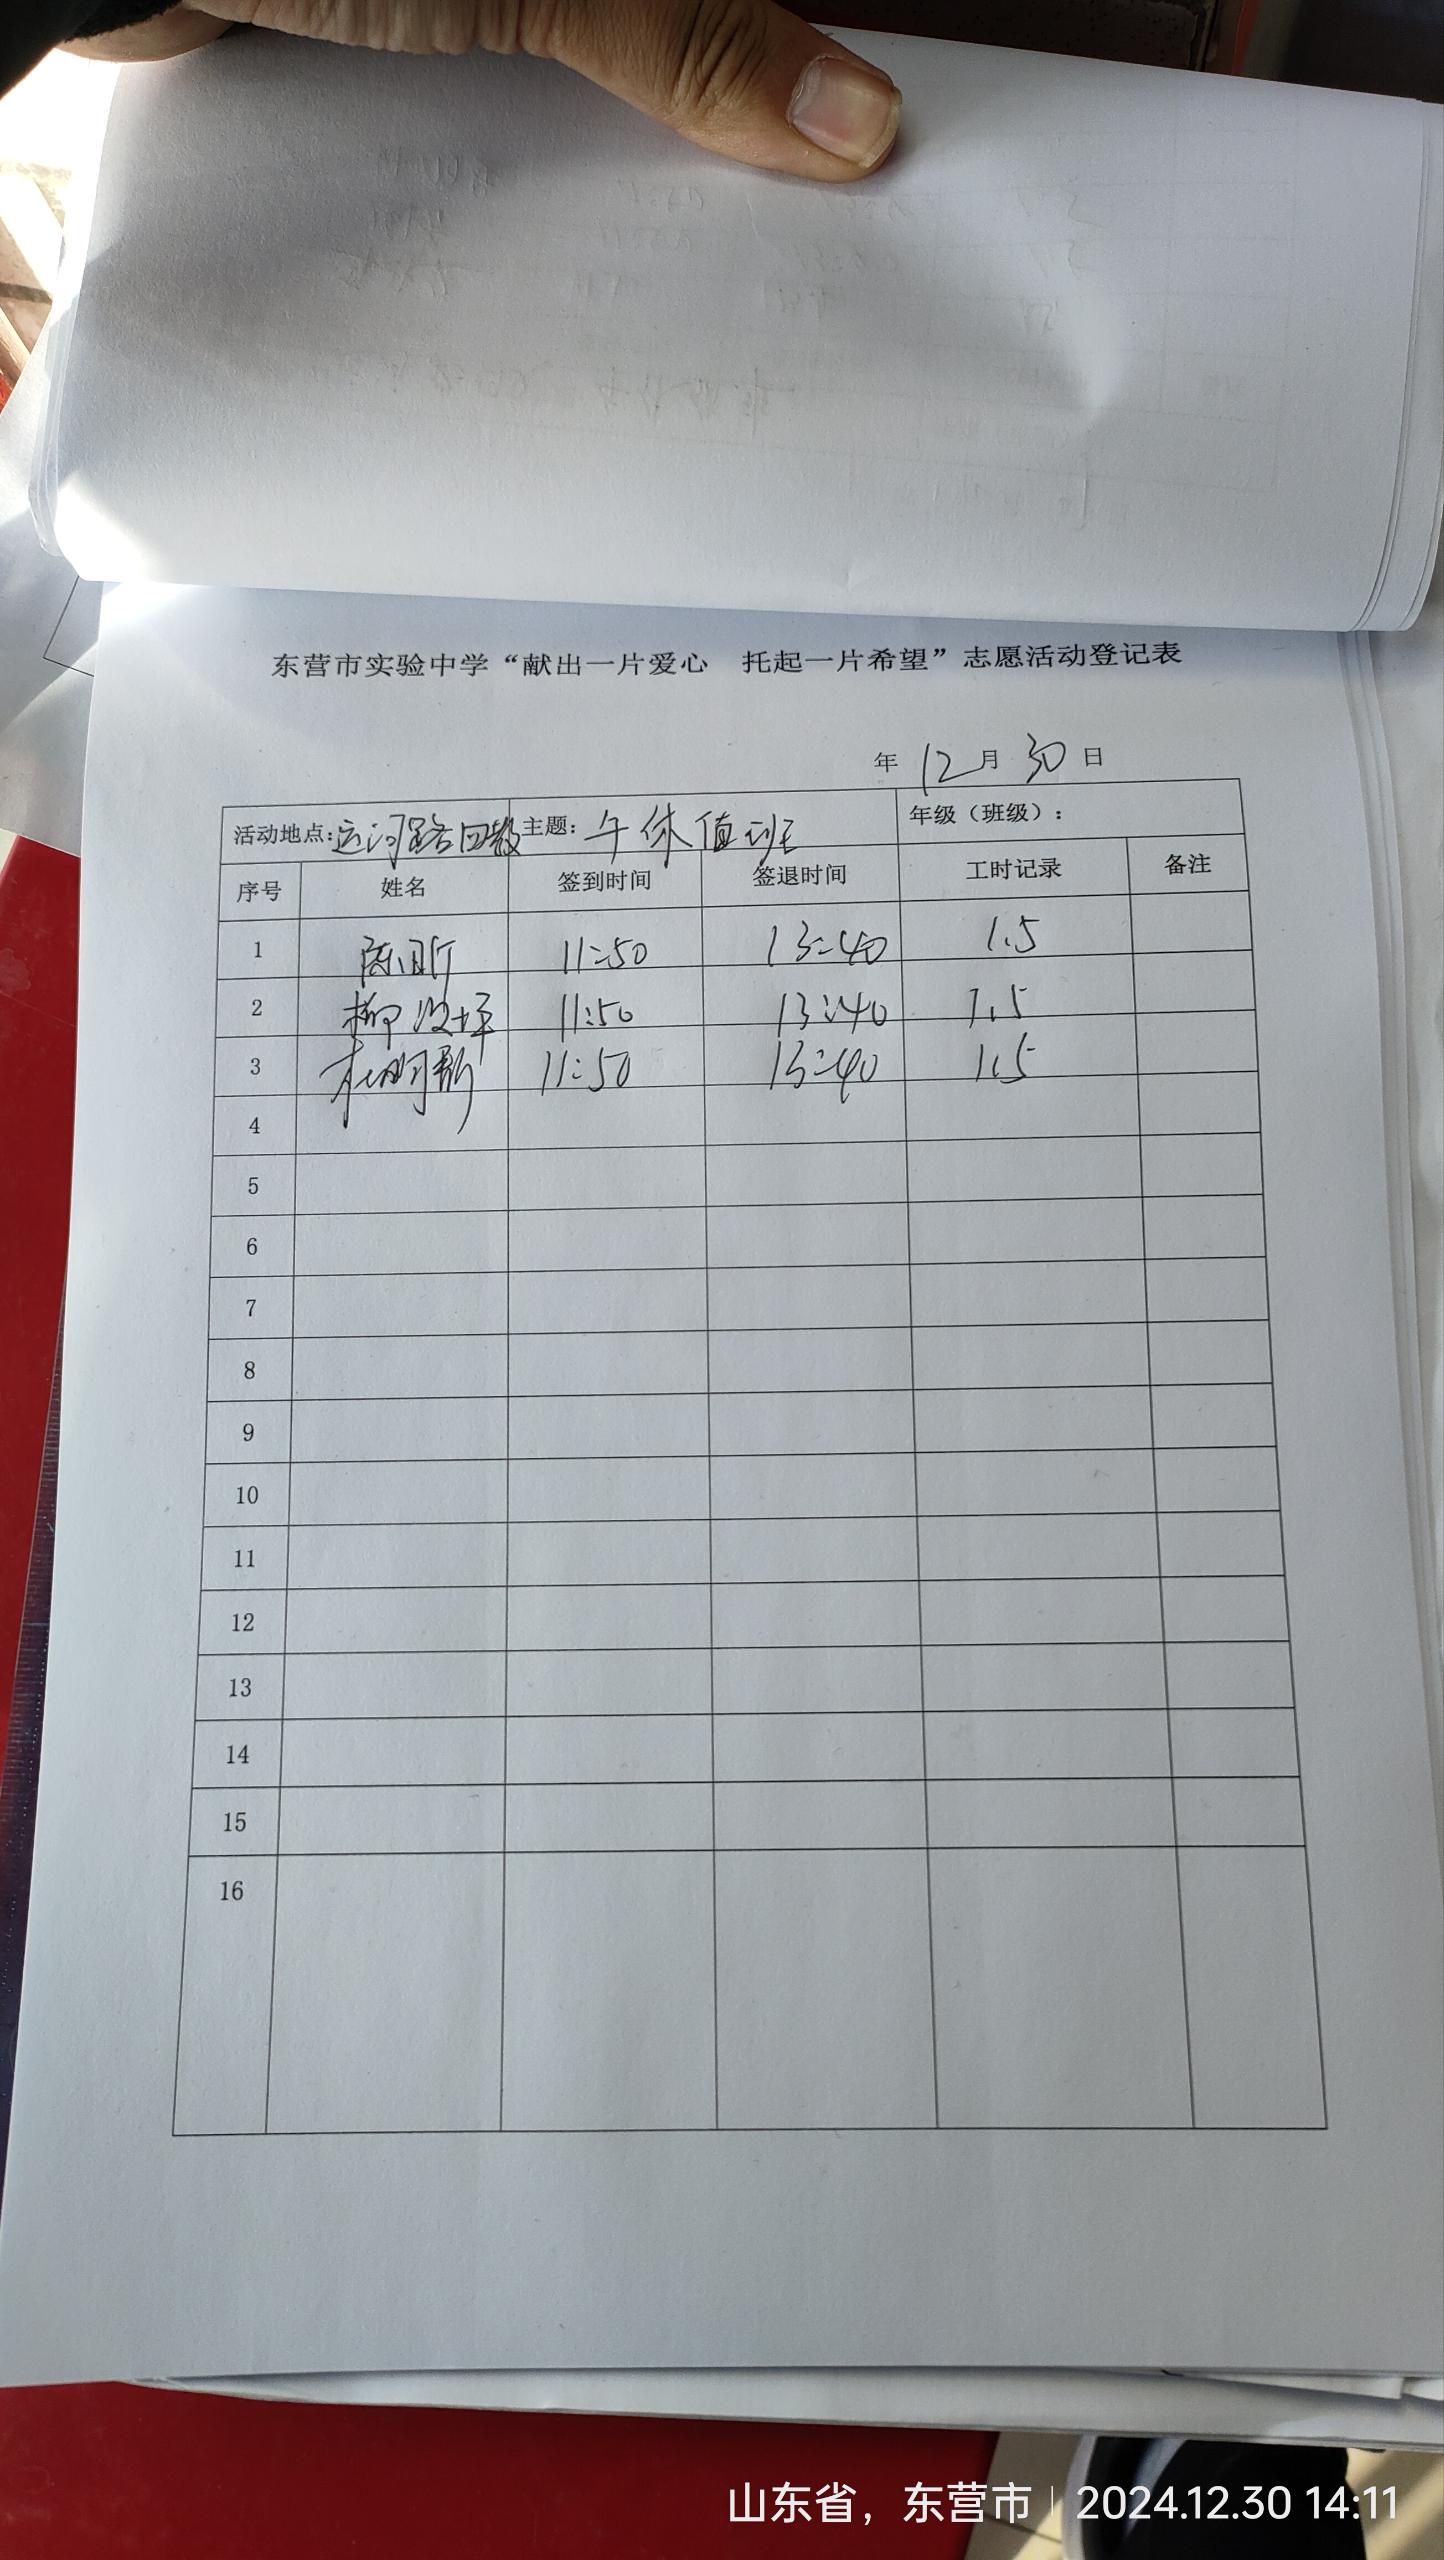 东营市实验中学“献出一片爱心 托起一片希望”志愿活动登记表
年 12月 30日
活动地点:运河路回数 主题: 午休值班 年级（班级）:
序号 姓名 签到时间 签退时间 工时记录 备注
1 陈 11:50 13:40 1.5
2 柳 11:50 13:40 1.5
3 杜明 11:50 13:40 1.5
4
5
6
7
8
9
10
11
12
13
14
15
16
山东省，东营市 2024.12.30 14:11